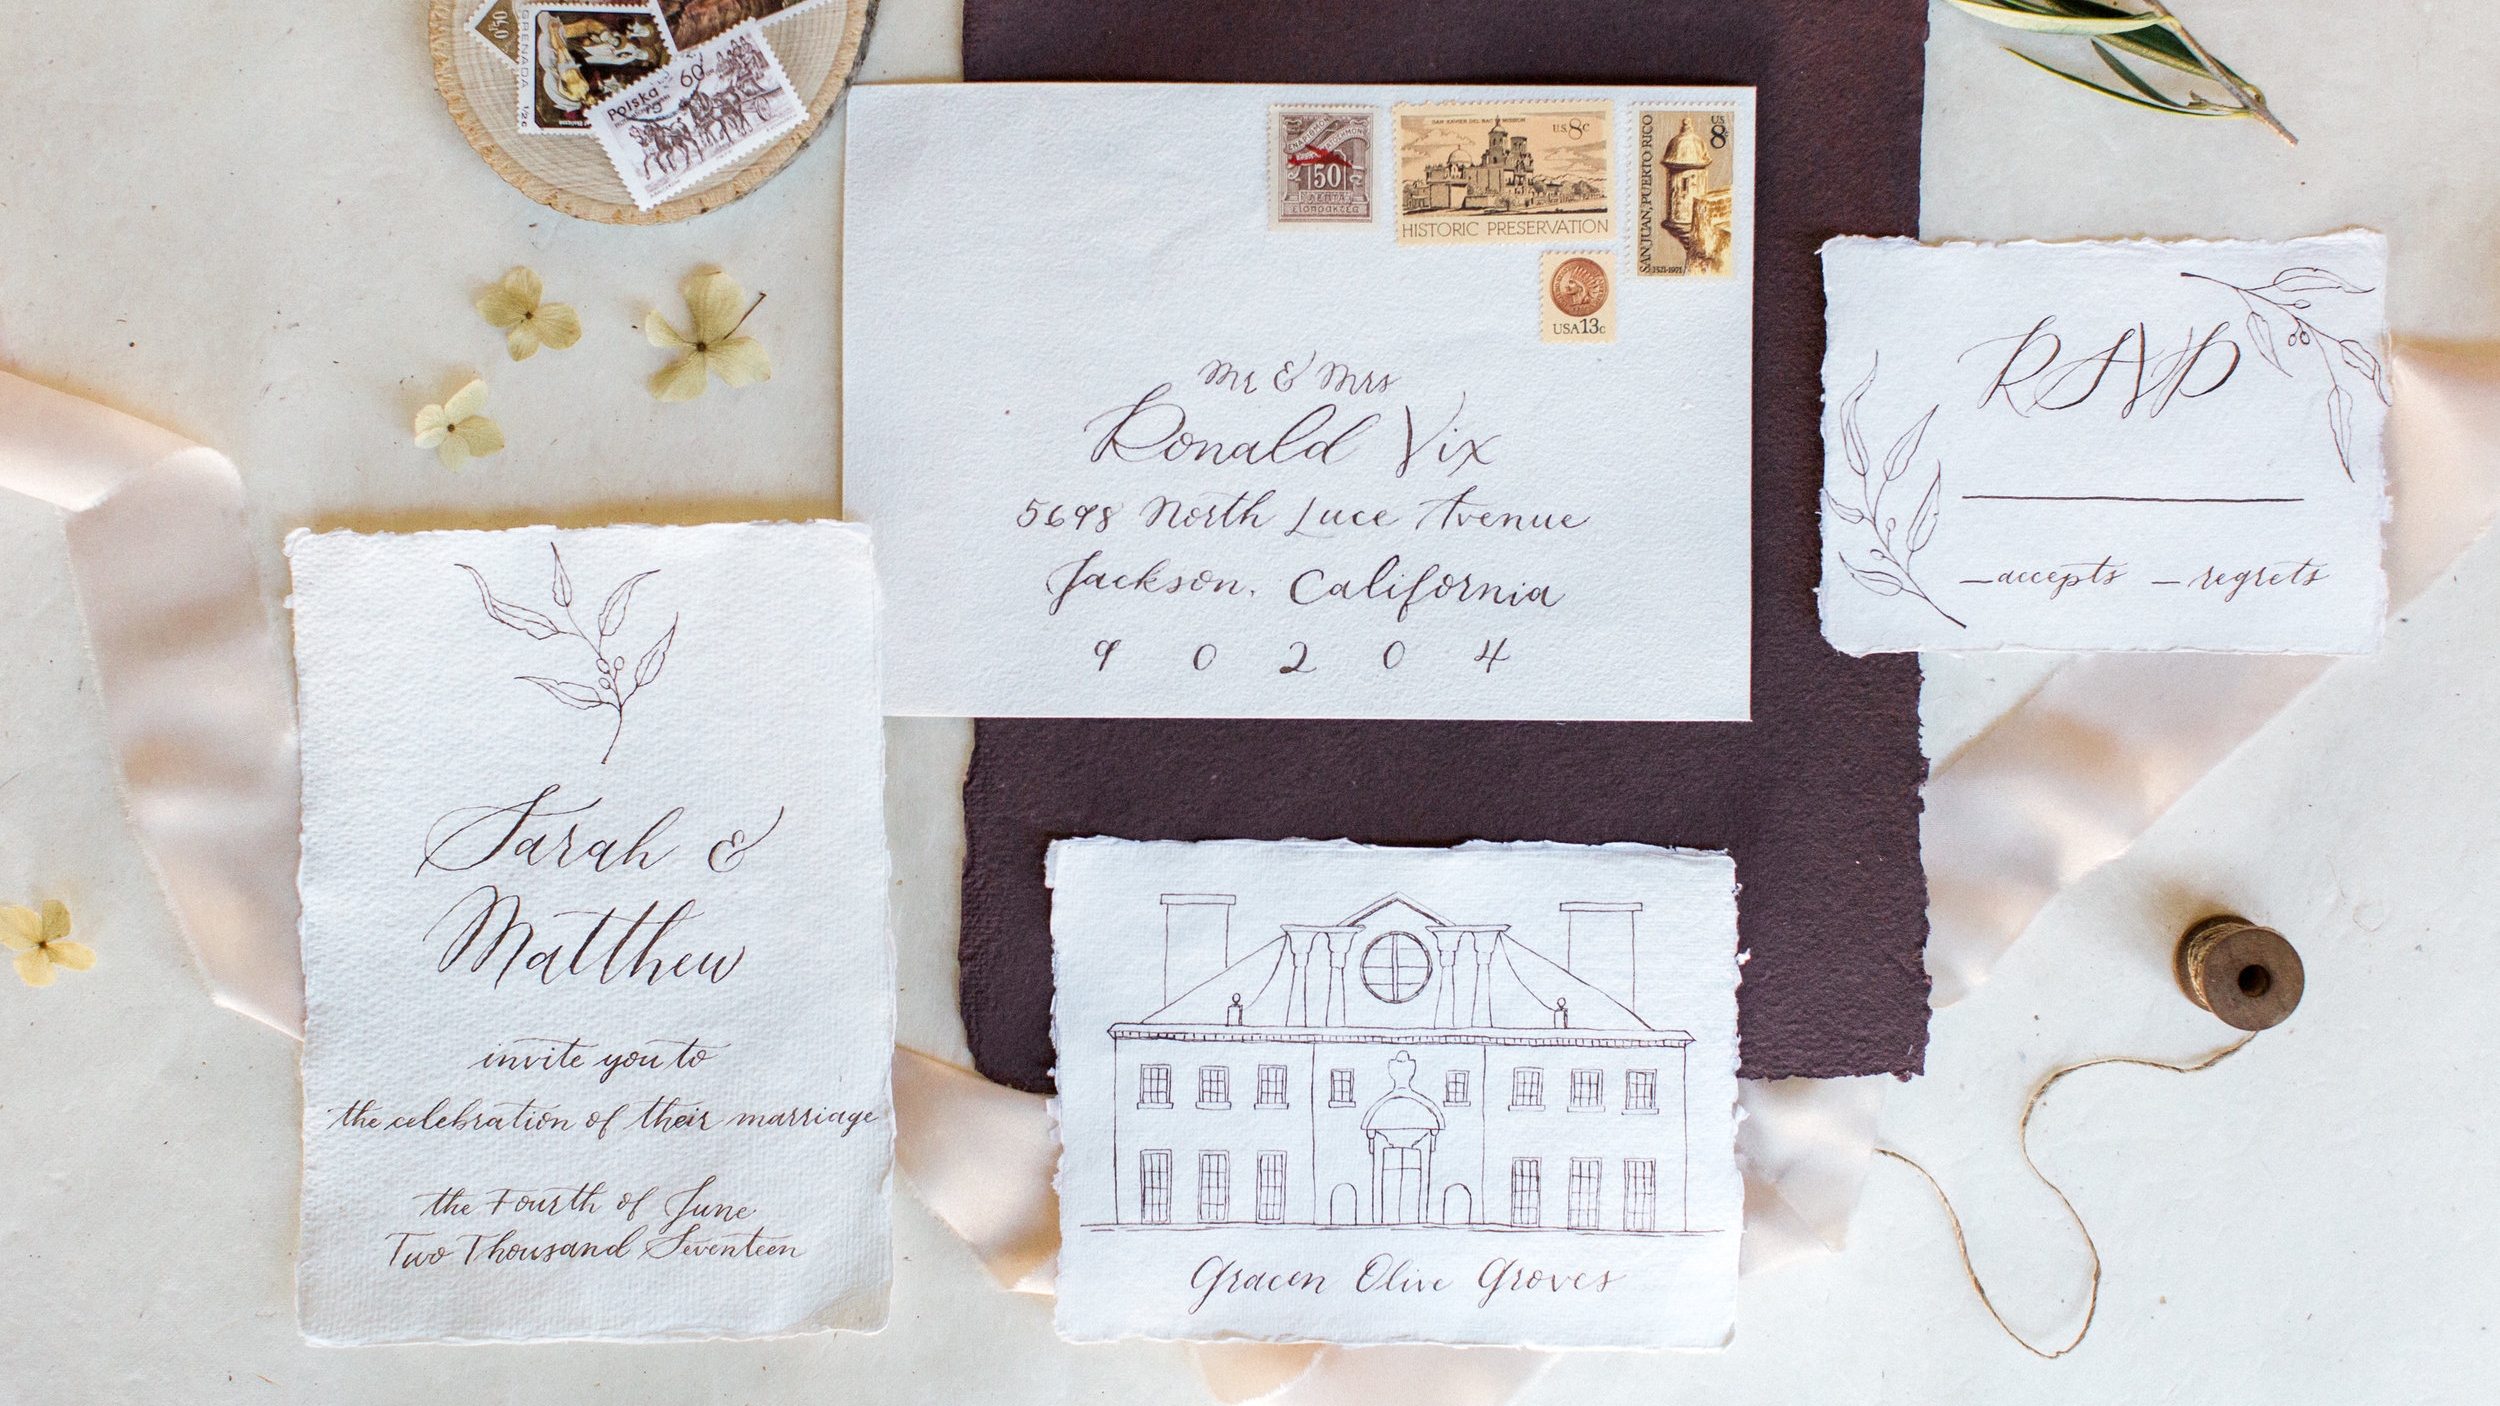 0,50
GRENADA
1/2c
Polska
60
50
SAN XAVIER DEL BAC MUSEUM
U.S. 8c
HISTORIC PRESERVATION
US
8c
SAN JUAN, PUERTO RICO
1521-1971
USA 13c
Mr & Mrs
Ronald Vix
5698 North Luce Avenue
Jackson, California
9 0 2 0 4
RSVP
_accepts _regrets
Sarah &
Matthew
invite you to
the celebration of their marriage
the Fourth of June
Two Thousand Seventeen
Gracen Olive Groves